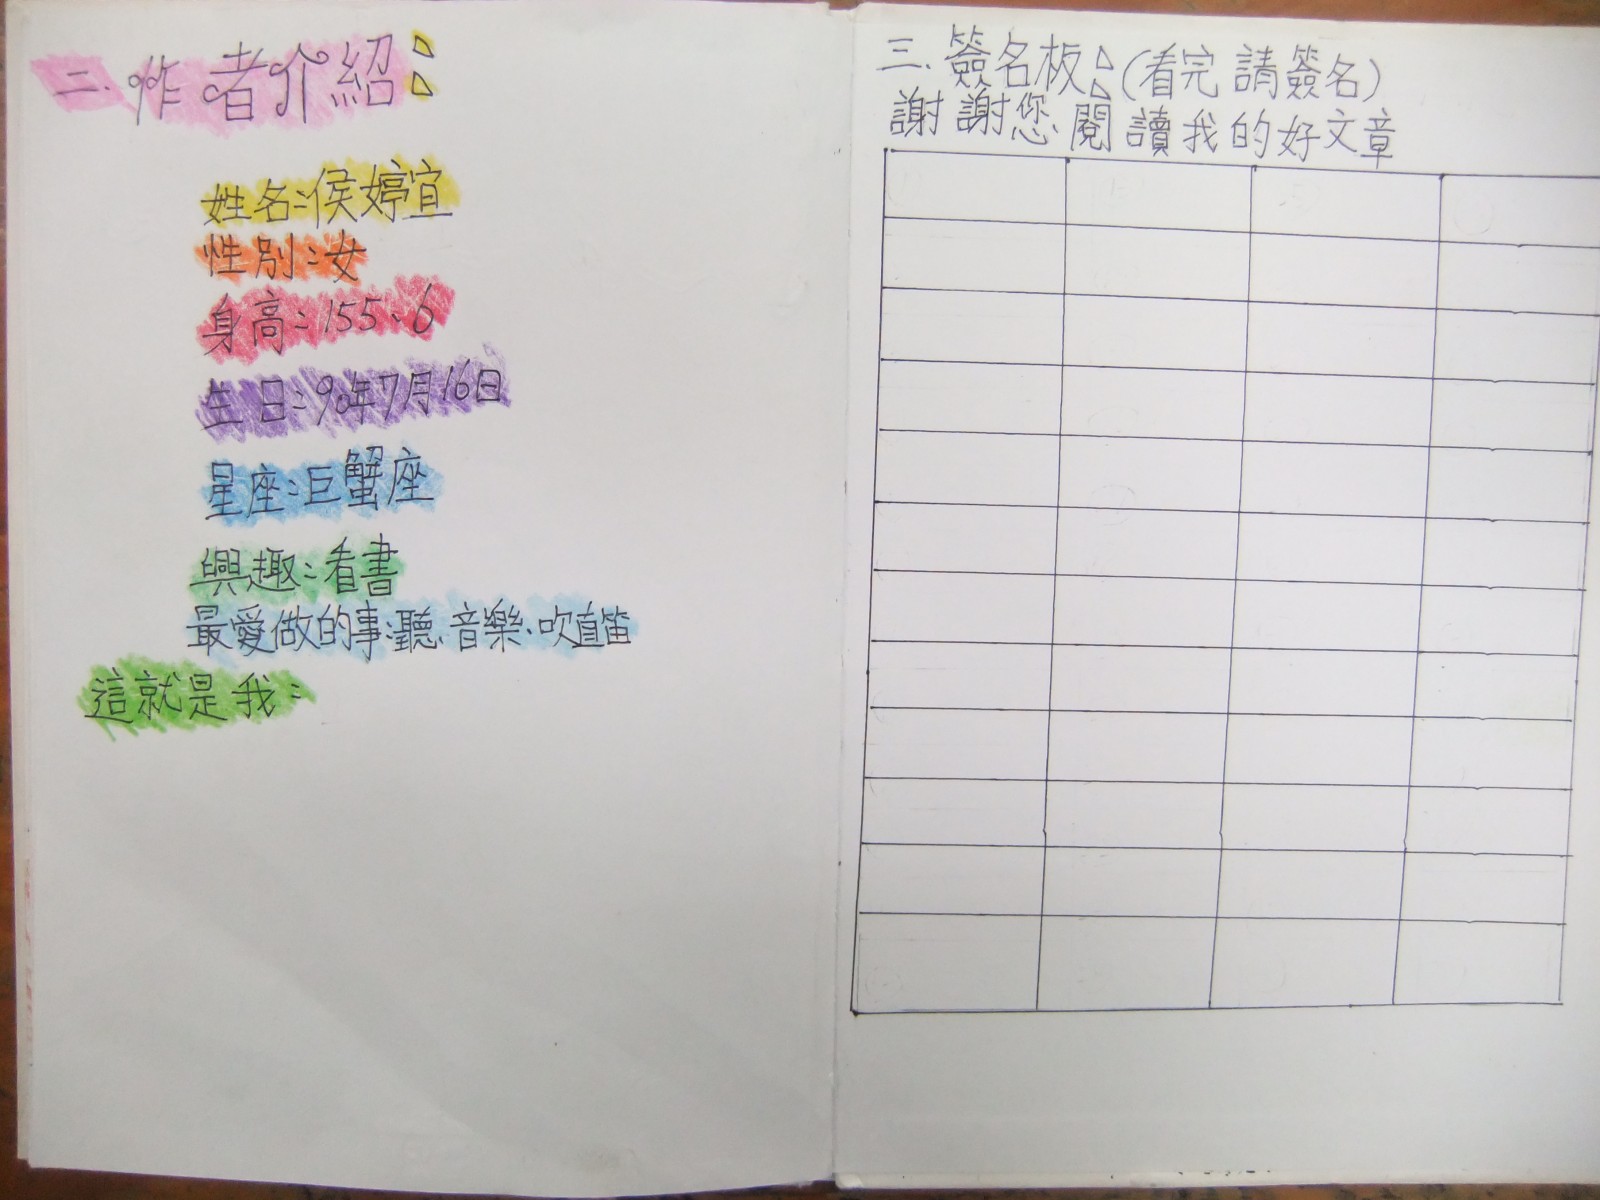 二.作者介紹:
姓名:侯婷宜
性別:女
身高:155、6
生日:90年7月16日
星座:巨蟹座
興趣:看書
最愛做的事:聽、音樂、吹直笛
這就是我:
三.簽名板:(看完請簽名)
謝謝您閱讀我的好文章